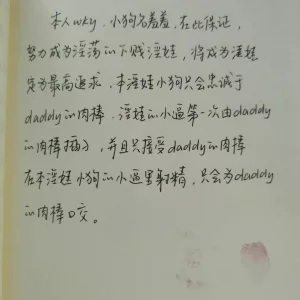 本人wky,小狗名羞羞,在此保证,
努力成为淫荡的下贱淫娃,将成为淫娃
定为最高追求。本淫娃小狗只会忠诚于
daddy的肉棒。淫娃的小逼第一次由daddy
的肉棒插入,并且只接受daddy的肉棒
在本淫娃小狗的小逼里射精,只会为daddy
的肉棒口交。